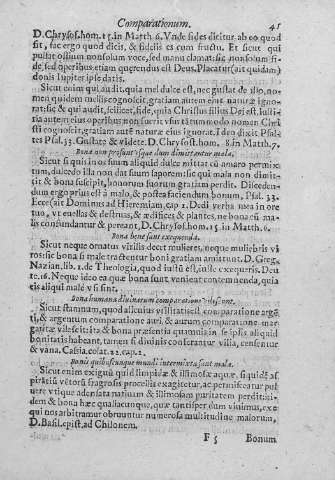 Comparationum. 41
D. Chrysost. hom. 15. in Matth. 6. Vnde fides dicitur ab eo quod
sit, fac ergo quod dicis, & fidelis es cum fructu. Et sicut qui
pulsat ostium non solum voce, sed manu clamat: sic non solum fi-
de, sed operibus etiam quærendus est Deus. Placatur (ait quidam)
donis Iupiter ipse datis.
Sicut enim qui audit, quia mel dulce est, nec gustat de illo, no-
men quidem mellis cognoscit, gratiam autem eius naturæ igno-
rat: sic & qui audit, scilicet, fide, quia Christus filius Dei est, iusti-
tiæ autem eius operibus non fuerit vsus: tantummodo nomen Chri-
sti cognoscit, gratiam autē naturæ eius ignorat. Iden dixit Psal-
tes Psal. 33. Gustate & videte. D. Chrysost. hom. 18. in Matth. 7.
Bona non prosunt nisi quæ dum dimittantur mala.
Sicut si quis in os suum aliquid dulce mittat cū amaro permix-
tum, dulcedo illa non dat suum saporem: sic qui mala non dimit-
tit & bona suscipit, honorum suorum gratiam perdit. Disceden-
dum ergo prius est à malo, & postea faciendum bonum, Psal. 33.
Ecce (ait Dominus ad Hieremiam, cap 1. D. di verba mea in ore
tuo, vt euellas & destruas, & ædifices & plantes, ne bona cū ma-
lis confundantur & pereant. D. Chrysost. hom. 15. in Matth. 6.
Bona bene sunt exequenda.
Sicut neque ornatus virilis decet mulieres, neque muliebris vi
ros: sic bona si male tractentur boni gratiam amittunt. D. Greg.
Nazian. lib. 1. de Theologia, quod iustū est, iuste exequeris. Deu
te. 16. Neque ideo ea quæ bona sunt, veniēt contemnenda, quia
eis aliqui male vsi sint.
Bona humana diuinarum comparatione vilescunt.
Sicut stamnum, quod alicuius vtilitatis est comparatione argē
ti, & argentum comparatione auri, & aurum comparatione mar-
garitæ vilescit: ita & bona præsentia quamuis in se ipsis aliquid
bonitatis habeant, tamen si diuinis conferantur villa, censentur
& vana. Cassia. colat. 21. cap. 2.
Bonis quibuscunque mundi intermixta sunt mala.
Sicut enim exiguū quid limpidæ & illimosæ aquæ, si quidē as-
piratiō vētorū fragrosis procellis exagitetur, ac permisceatur put
uere vtique adensata natiuam & illimosam puritatem perdet: ea-
dem & bona hæc qualiacunque, quæ tantisper dum vinimus, exe
qui nos arbitramur obruuntur numerosa multitudine malorum,
D. Basil. epist. ad Chilonem.
F 5 Bonum